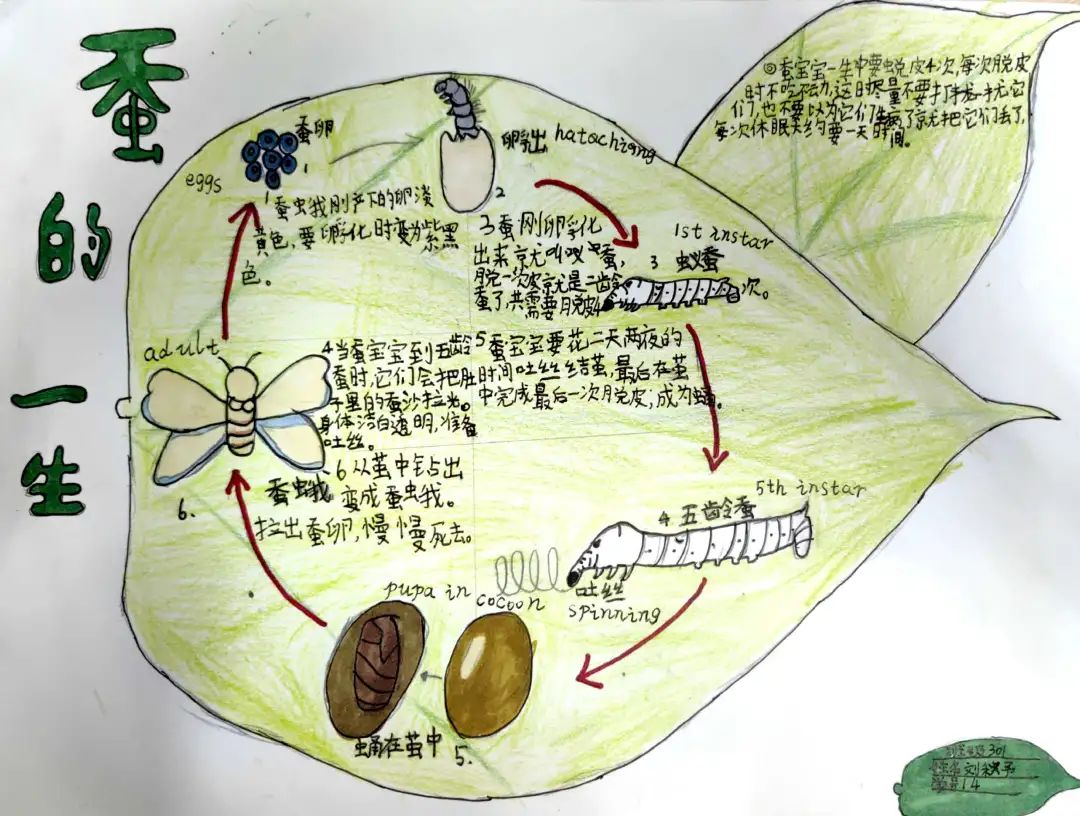 蚕的一生
◎蚕宝宝一生中要蜕皮4次,每次脱皮
时不吃不动,这时尽量不要打扰它
们,也不要以为它们生病了就把它们丢了,
每次休眠大约要一天时间。
蚕卵
eggs
1
1 蚕蛾刚产下的卵淡
黄色,要孵化时变为紫黑
色。
孵出
hatochiang
2
3 蚕刚卵孵化
出来就叫蚁蚕,
脱一次皮就是二龄
蚕了,共需要脱皮4
次。
1st instar
3 蚁蚕
4 当蚕宝宝到五龄
蚕时,它们会把肚
子里的蚕沙拉光。
身体洁白透明,准备
吐丝。
5 蚕宝宝要花二天两夜的
时间吐丝丝结茧,最后在茧
中完成最后一次脱皮,成为蛹。
adult
6.
蚕蛾
6 从茧中钻出
变成蚕蛾。
拉出蚕卵,慢慢死去。
5th instar
4 五龄蚕
吐丝
spinning
pupa in cocoon
蛹在茧中
5.
班级301
姓名刘
学号14